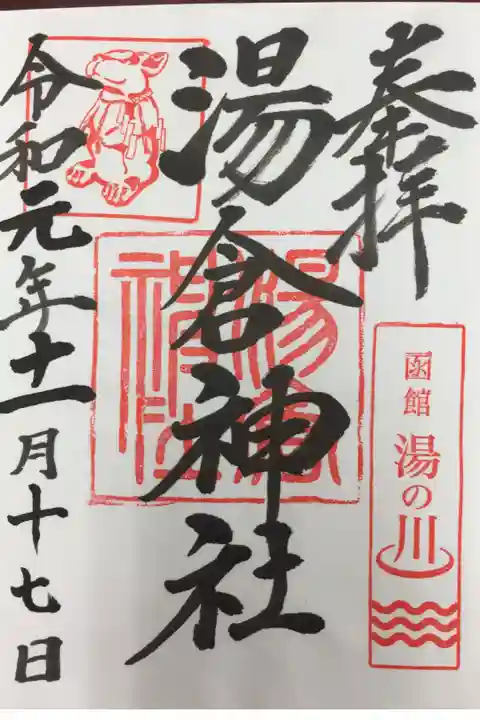 奉拝
函館 湯の川
湯倉神社
湯倉神社
令和元年十一月十七日